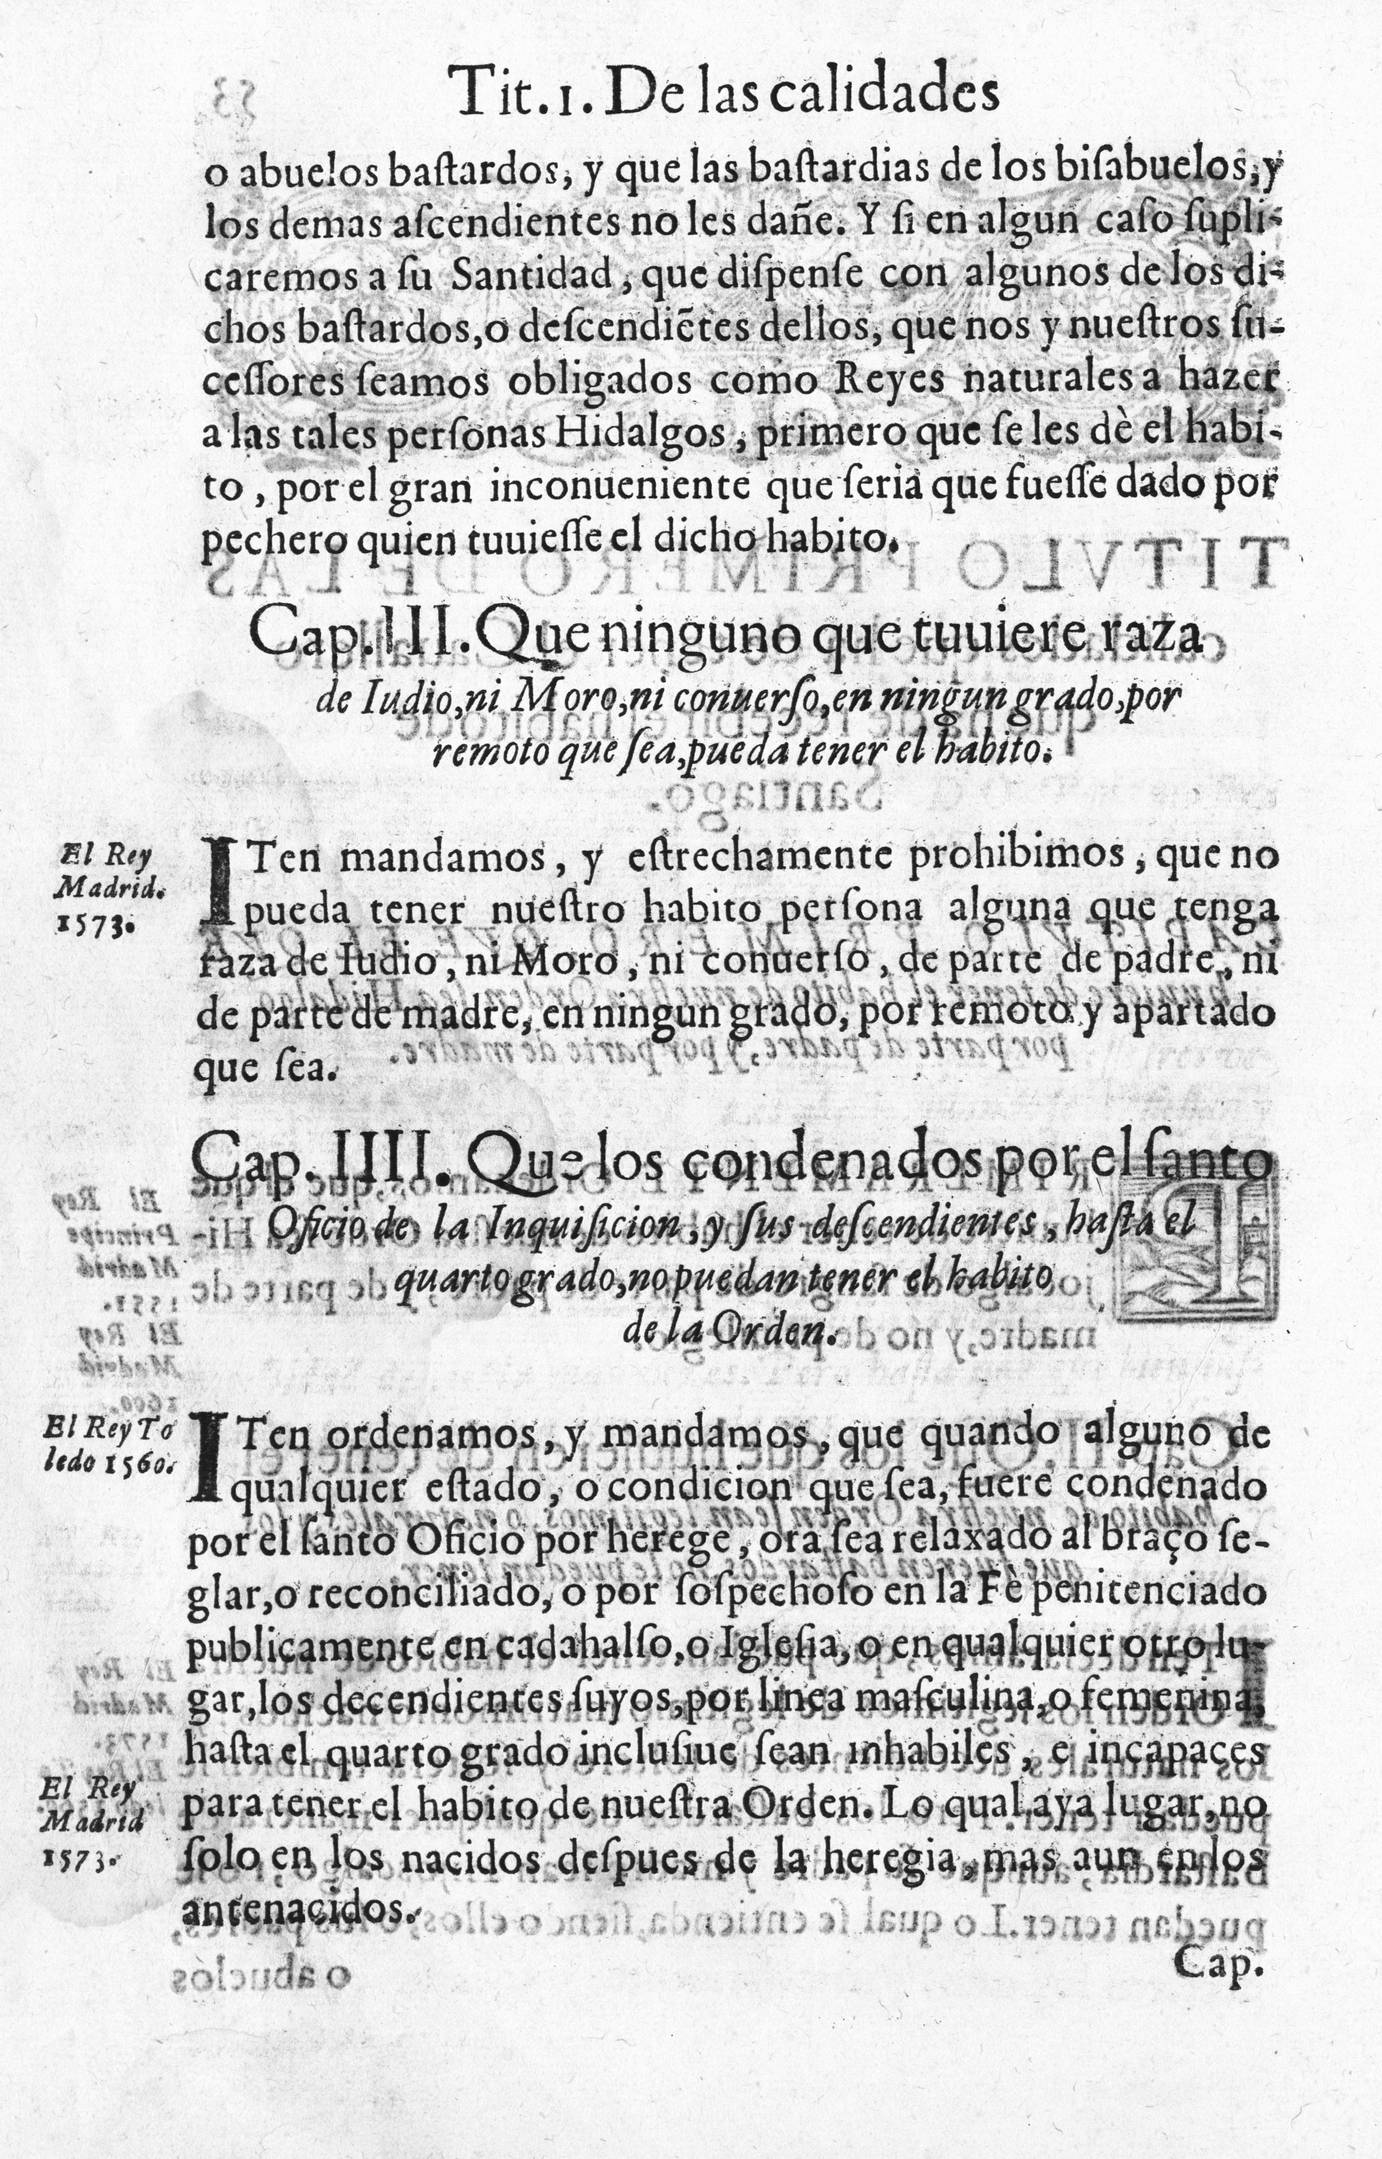 Tit. 1. De las calidades
o abuelos baſtardos, y que las baſtardias de los biſabuelos, y
los demas aſcendientes no les dañe. Y ſi en algun caſo ſupli-
caremos a ſu Santidad, que diſpenſe con algunos de los di-
chos baſtardos, o deſcendiẽtes dellos, que nos y nueſtros ſu-
ceſſores ſeamos obligados como Reyes naturales a hazer
a las tales perſonas Hidalgos, primero que ſe les dè el habi-
to, por el gran inconueniente que ſeria que fueſſe dado por
pechero quien tuuieſſe el dicho habito.
Cap. III. Que ninguno que tuuiere raza
de Iudio, ni Moro, ni conuerſo, en ningun grado, por
remoto que ſea, pueda tener el habito.
El Rey
Madrid.
1573.
ITen mandamos, y eſtrechamente prohibimos, que no
pueda tener nueſtro habito perſona alguna que tenga
raza de Iudio, ni Moro, ni conuerſo, de parte de padre, ni
de parte de madre, en ningun grado, por remoto y apartado
que ſea.
Cap. IIII. Que los condenados por el ſanto
Oficio de la Inquiſicion, y ſus deſcendientes, haſta el
quarto grado, no puedan tener el habito
de la Orden.
El Rey To
ledo 1560.
ITen ordenamos, y mandamos, que quando alguno de
qualquier eſtado, o condicion que ſea, fuere condenado
por el ſanto Oficio por herege, ora ſea relaxado al braço ſe-
glar, o reconciliado, o por ſoſpechoſo en la Fè penitenciado
publicamente en cadahalſo, o Igleſia, o en qualquier otro lu-
gar, los decendientes ſuyos, por linea maſculina, o femenina,
haſta el quarto grado incluſiue ſean inhabiles, e incapaces
para tener el habito de nueſtra Orden. Lo qual aya lugar, no
ſolo en los nacidos deſpues de la heregia, mas aun en los
antenacidos.
El Rey
Madrid
1573.
Cap.